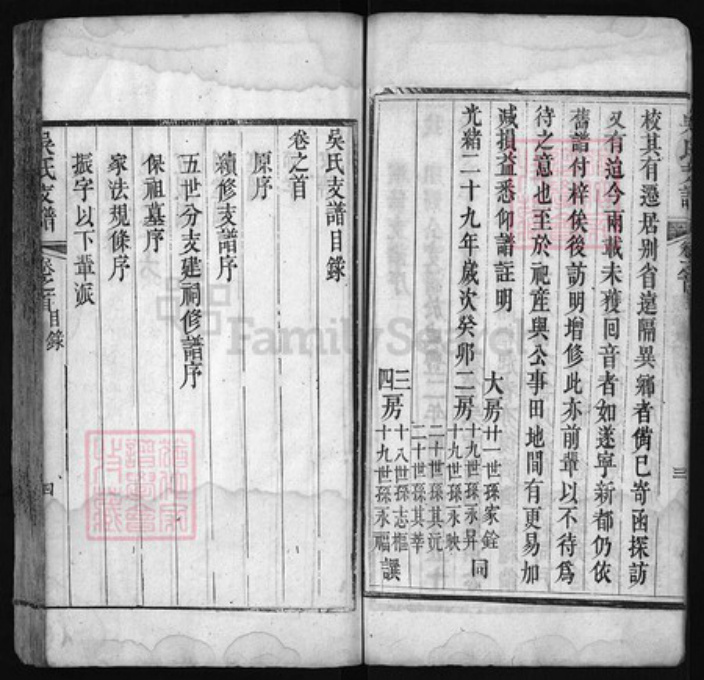 校其有遷居别省遠隔異鄉者備已寄函探訪
又有迨今兩載未獲囘音者如遂寧新都仍依
舊譜付梓俟後訪明增修此亦前輩以不待爲
待之意也至於祀産與公事田地間有更易加
減損益悉仰譜註明
光緒二十九年歲次癸卯
大房廿一世孫家銓
二房十九世孫永昇
十九世孫永映
二十世孫其沅
二十世孫其華
三房十八世孫志樞
四房十九世孫永福
同
譔
三
吳氏支譜
卷之首
吳氏支譜目錄
卷之首
原序
續修支譜序
五世分支建祠修譜序
保祖墓序
家法規條序
振字以下輩派
吳氏支譜
卷之首目錄
四
FamilySearch